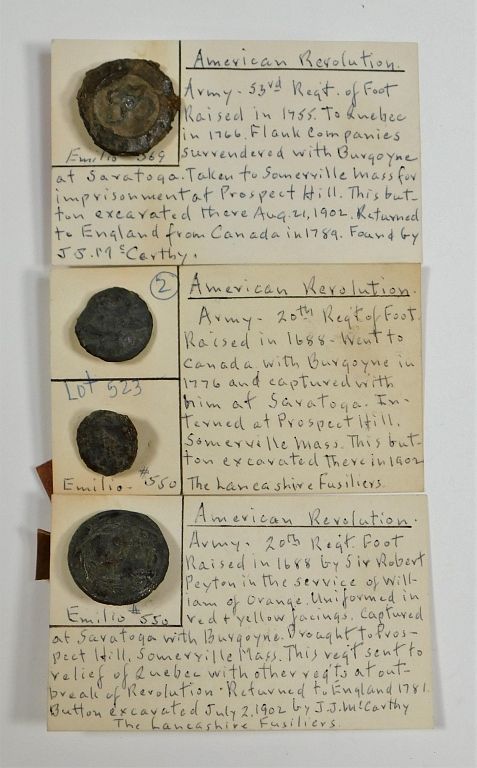 American Revolution.
Army - 53rd Regt. of Foot
Raised in 1755. To Quebec
in 1766. Flank Companies
Emilio 569
surrendered with Burgoyne
at Saratoga. Taken to Somerville Mass for
imprisonment at Prospect Hill. This but-
ton excavated there Aug. 21, 1902. Returned
to England from Canada in 1789. Found by
J.J. McCarthy.
2
American Revolution.
Army - 20th Reg't of Foot.
Raised in 1688 - Went to
Canada with Burgoyne in
1776 and captured with
Lot 523
him at Saratoga. In-
terned at Prospect Hill,
Somerville Mass. This but-
ton excavated there in 1902
Emilio - #550
The Lancashire Fusiliers
American Revolution.
Army - 20th Regt. Foot
Raised in 1688 by Sir Robert
Peyton in the service of Will-
iam of Orange. Uniformed in
Emilio #550
red + yellow facings. Captured
at Saratoga with Burgoyne. Brought to Pros-
pect Hill, Somerville Mass. This regt sent to
relief of Quebec with other reg'ts at out-
break of Revolution. Returned to England 1781.
Button excavated July 2, 1902 by J.J. McCarthy
The Lancashire Fusiliers.